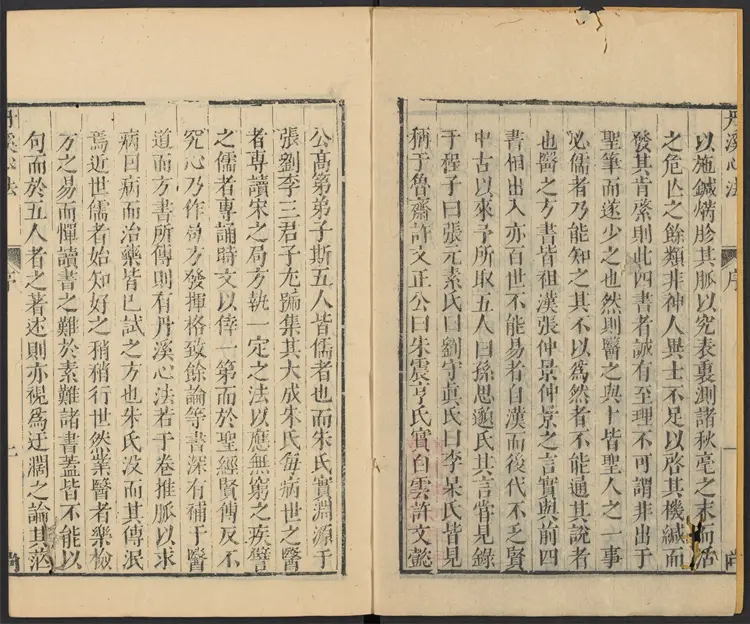 丹溪心法 序 一
以施鍼焫診其脉以究表裏測諸秋毫之末而活
之危亡之餘類非神人異士不足以啓其機緘而
發其肯綮則此四書者誠有至理不可謂非出于
聖筆而遂少之也然則醫之與卜皆聖人之一事
必儒者乃能知之其不以爲然者不能通其說者
也醫之方書皆祖漢張仲景仲景之言實與前四
書相出入亦百世不能易者自漢而後代不乏賢
中古以來予所取五人曰孫思邈氏其言嘗見錄
于程子曰張元素氏曰劉守眞氏曰李杲氏皆見
稱于魯齋許文正公曰朱震亨氏實白雲許文懿
公高第弟子斯五人皆儒者也而朱氏實淵源于
張劉李三君子尤號集其大成朱氏每病世之醫
者專讀宋之局方執一定之法以應無窮之疾譬
之儒者專誦時文以倖一第而於聖經賢傳反不
究心乃作局方發揮格致餘論等書深有補于醫
道而方書所傳則有丹溪心法若干卷推脉以求
病因病而治藥皆已試之方也朱氏没而其傳泯
焉近世儒者始知好之稍稍行世然業醫者樂檢
方之易而憚讀書之難於素難諸書蓋皆不能以
句而於五人者之著述則亦視爲迂濶之論其茫
丹溪心法 序